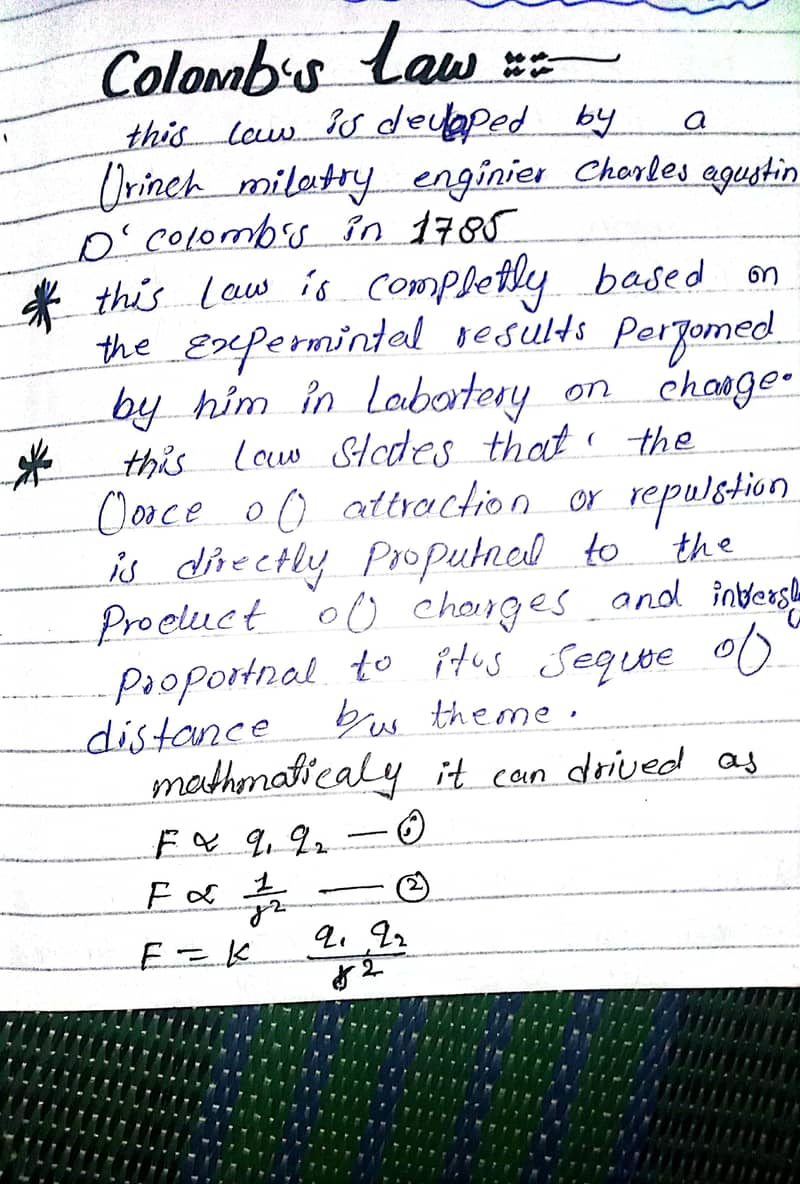 Colomb's Law ::—
this law is devloped by a
french milatry enginier Charles agustin
D' colomb's in 1785
* this law is completly based on
the Expermintal results Perfomed
by him in Labortery on charge.
* this law States that, the
force of attraction or repulstion
is directly Proputnal to the
Product of charges and inversl
Proportnal to it's Sequre of
distance b/w theme.
mathmaticaly it can drived as
F ∝ q₁ q₂ — ①
F ∝ 1/r² — ②
F = K q₁ q₂/r²